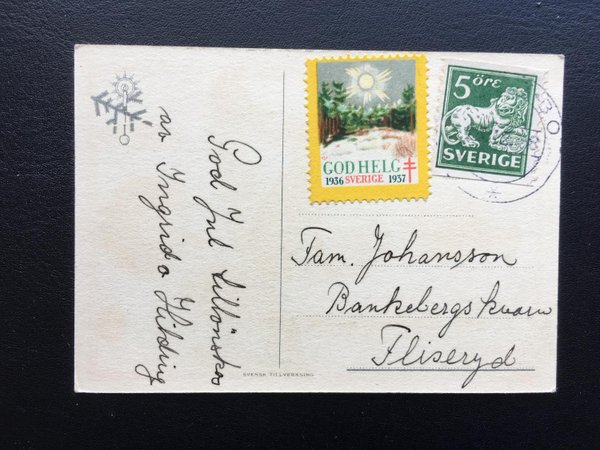 God Jul tillönskas
av Ingrid o Hilding
GOD HELG
1936 SVERIGE 1937
5 ÖRE
SVERIGE
Fam. Johansson
Bankebergs kvarn
Fliseryd
SVENSK TILLVERKNING